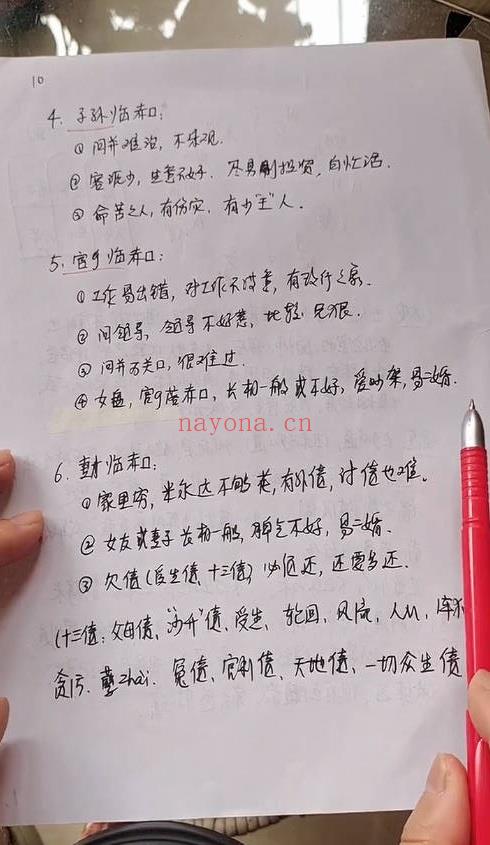 10
4. 子孙临赤口:
① 问并难治, 不乐观.
② 客源少, 生意不好. 不易投资, 白忙活
③ 命苦之人, 有伤灾, 有少"亡"人.
5. 官鬼临赤口:
① 工作易出错, 对工作不满意, 有改行之象.
② 问领导, 领导不好惹, 比较 凶狠.
③ 问并为关口, 很难过.
④ 女盘, 官鬼落赤口, 长相一般或不好, 爱吵架, 易二婚.
nayona.cn
6. 妻财临赤口:
① 家里穷, 半永达不够花, 有外债, 讨债也难.
② 女友或妻子长相一般, 脾气不好, 易二婚.
③ 欠债(受生债、十三债) 必须还, 还要多还.
(十三债: 父母债、"沙开"债、受生、轮回、风流、人口、
贪污、孽zhai、冤债、官刑债、天地债、一切众生债